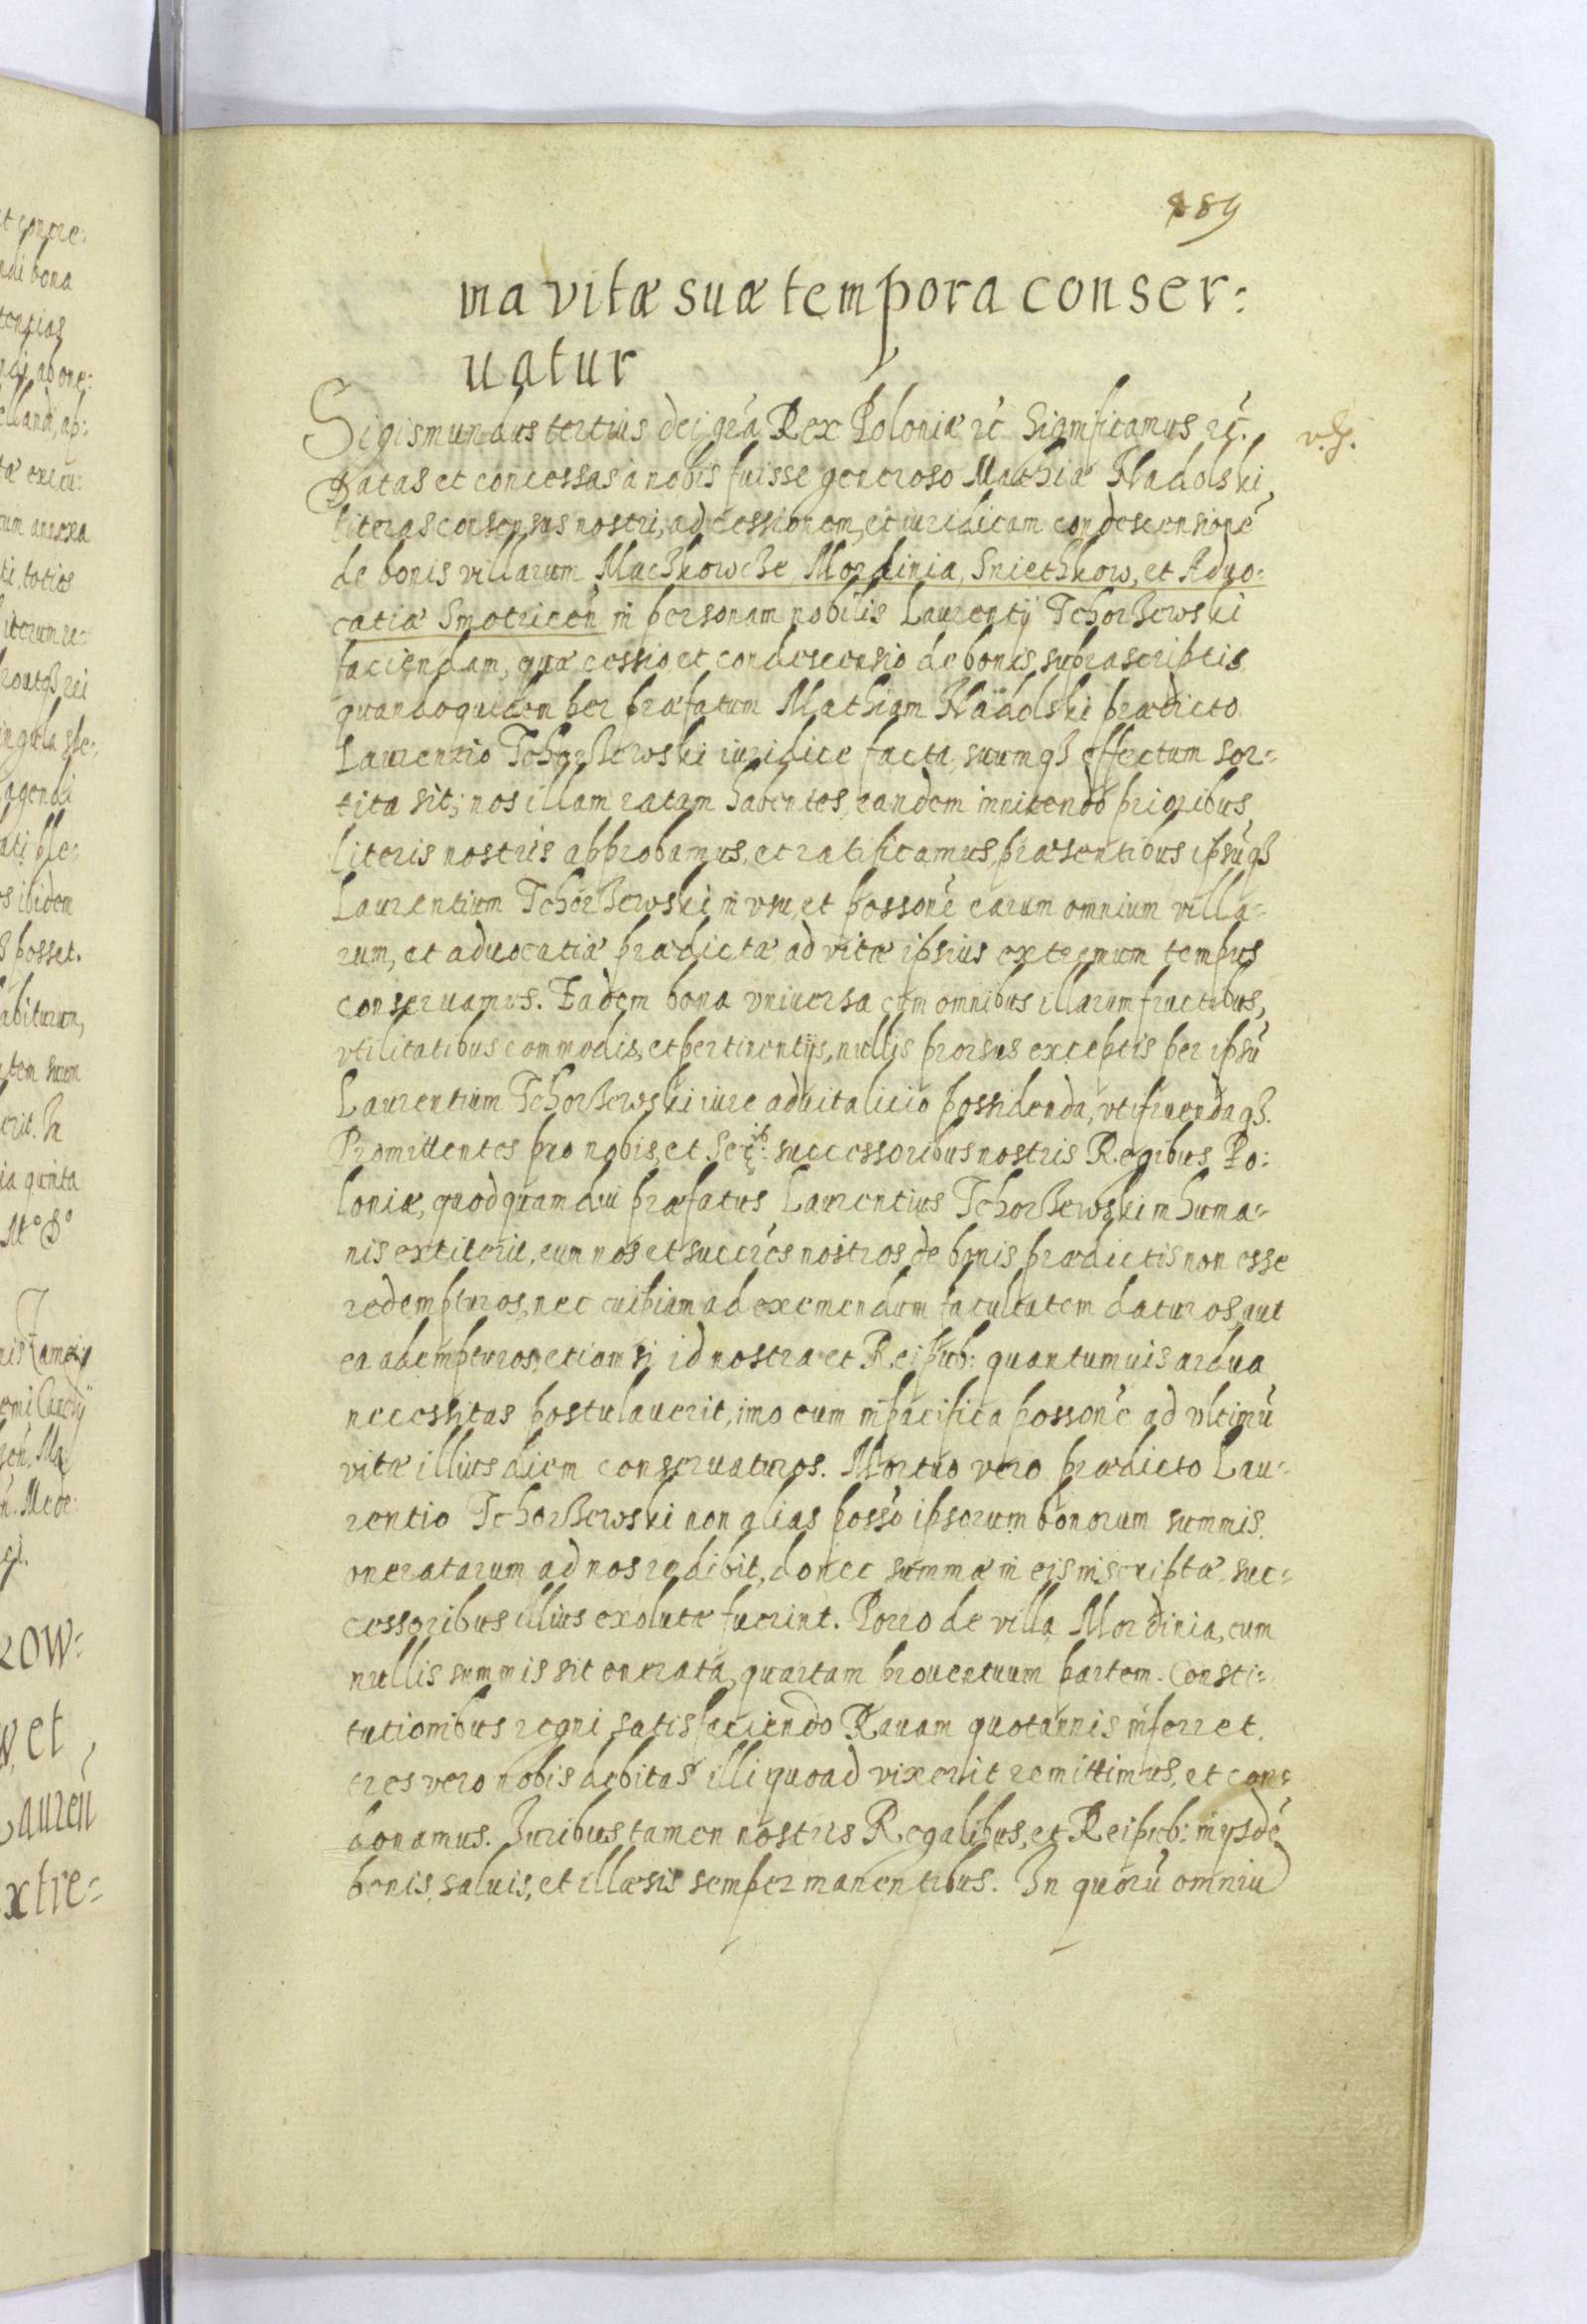 189
ma vitæ suæ tempora conser:
uatur
Sigismundus tertius dei grã Rex Poloniæ etc̃ Significamus etc̃.
Datas et concessas à nobis fuisse generoso Mathiæ Nadolski,
literas consensus nostri, ad cessionem, et iuridicam condescensionẽ
de bonis villarum Machkowche Mordinia, Sniethkow, et Aduo:
catiæ Smotriceñ in personam nobilis Laurentÿ Tchorßewski
faciendam, quæ cessio et condescensio de bonis suprascriptis
quandoquidem per præfatum Mathiam Nadolski prædicto
Laurentio Tchorßewski iuridice facta, suumqȝ effectum sor=
tita sit; nos illam ratam habentes, eandem innitendo prioribus
literis nostris approbamus, et ratificamus, præsentibus ipsũqȝ
Laurentium Tchorßewski in vsu, et possonẽ earum omnium villa=
rum, et aduocatiæ prædictæ ad vitæ ipsius extremum tempus
conseruamus. Eadem bona vniuersa cum omnibus illarum fructibus,
vtilitatibus commodis, et pertinentijs, nullis prorsus exceptis per ipsũ
Laurentium Tchorßewski iure aduitalicio possidenda, vtifruendaqȝ.
Promittentes pro nobis, et Ser: successoribus nostris Regibus Po:
loniæ, quod quamdiu præfatus Laurentius Tchorßewski in huma=
nis extiterit, eum nos et succẽs nostros de bonis prædictis non esse
redempturos, nec cuipiam ad eximendum facultatem daturos, aut
ea adempturos, etiam si id nostra et Reipub: quantumuis ardua
necessitas postulauerit, imo eum in pacifica possonẽ ad vltimũ
vitæ illius diem conseruaturos. Mortuo vero prædicto Lau=
rentio Tchorßewski non alias possõ ipsorum bonorum summis
oneratarum ad nos redibit, donec summæ in eis inscriptæ suc=
cessoribus illius exolutæ fuerint. Porro de villa Mordinia, cum
nullis summis sit onerata, quartam prouentuum partem. Consti=
tutionibus regni satisfaciendo Rauam quotannis inferret.
tres vero nobis debitas illi quoad vixerit remittimus, et con=
donamus. Iuribus tamen nostris Regalibus, et Reipub: in ysdẽ
bonis, saluis, et illæsis semper manentibus. In quorũ omniũ